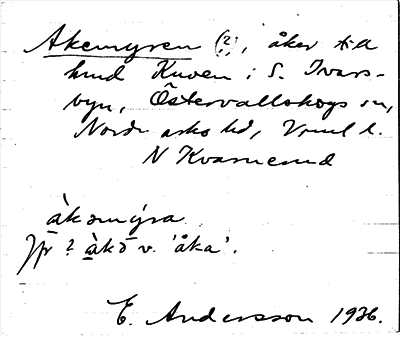 Akemyren (2), åker t.a
hmd Kuven i S. Ivars-
byn, Östervallskogs sn,
Nordm arks hd, Vrml l.
N Kvarnemd
àkəmýra
Jfr ? àkō v. 'åka'.
E. Andersson 1936.